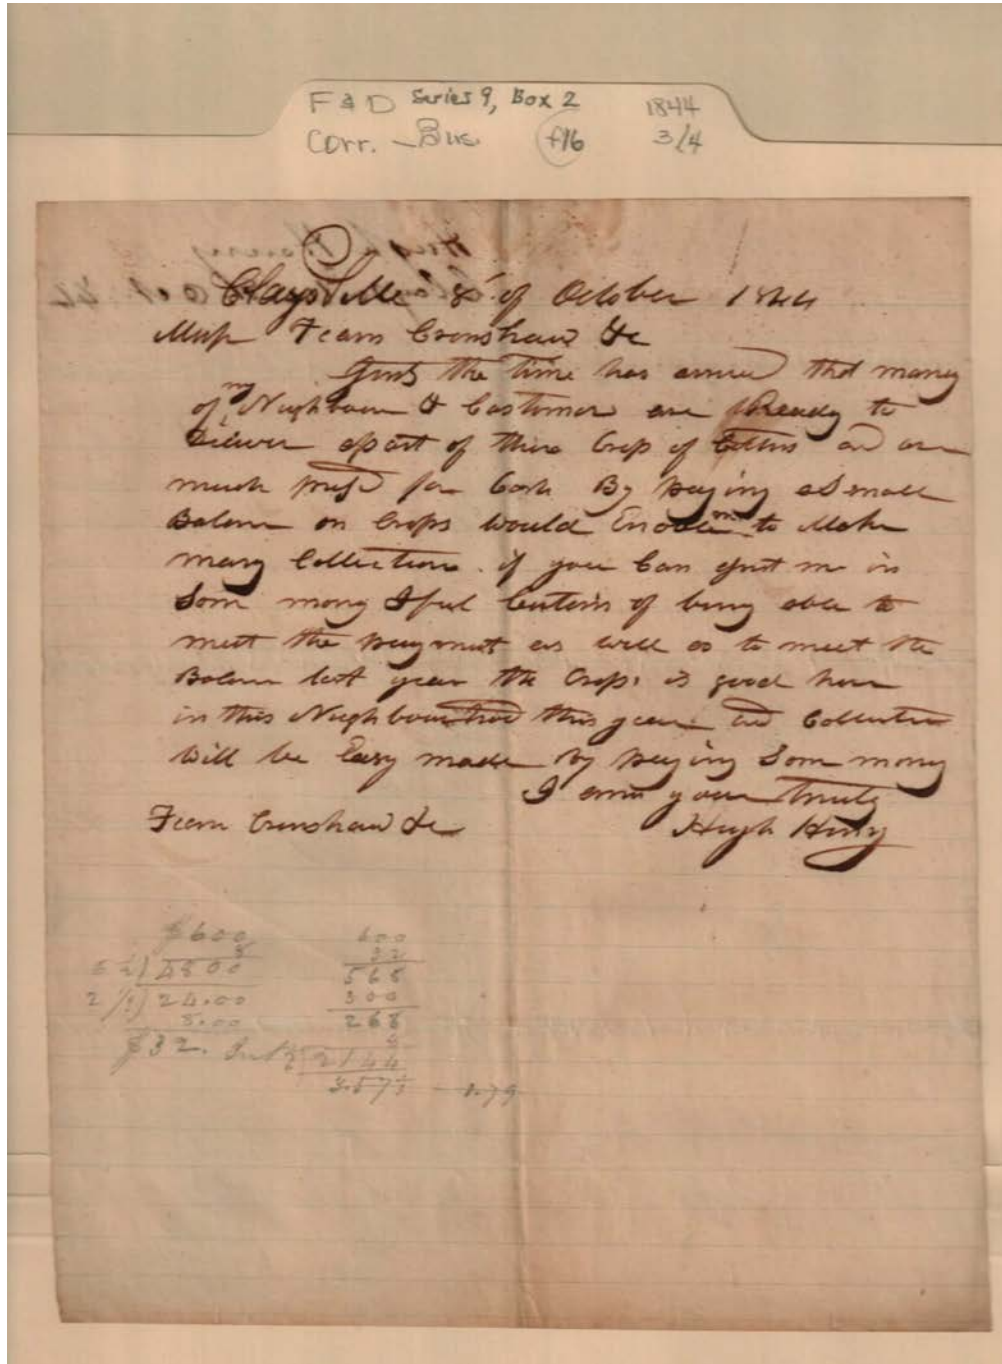 F & D Series 9, Box 2 1844
Corr. - Bus. f16 3/4
Claysville 8 of October 1844
Mess Fearn Crenshaw &c
Gents the time has arrived that many
of my Neighbours & Customers are Ready to
Deliver apart of there Crop of Cotton and are
much presd for Cash By paying a Small
Balance on Crops would Enable me to Make
many Collections. if you Can me in
Som mony I feel Certain of being able to
meet the payment as well as to meet the
Balance last year the Crops is good here
in this Neighbourhood this year and Collections
will be Easy made by paying Som mony
I am your truly
Fearn Crenshaw &c Hugh Henry
$600 600
8 32
6 ½) 4800 568
2 ) 24.00 300
8.00 268
$32. Int 8
2144
3.57